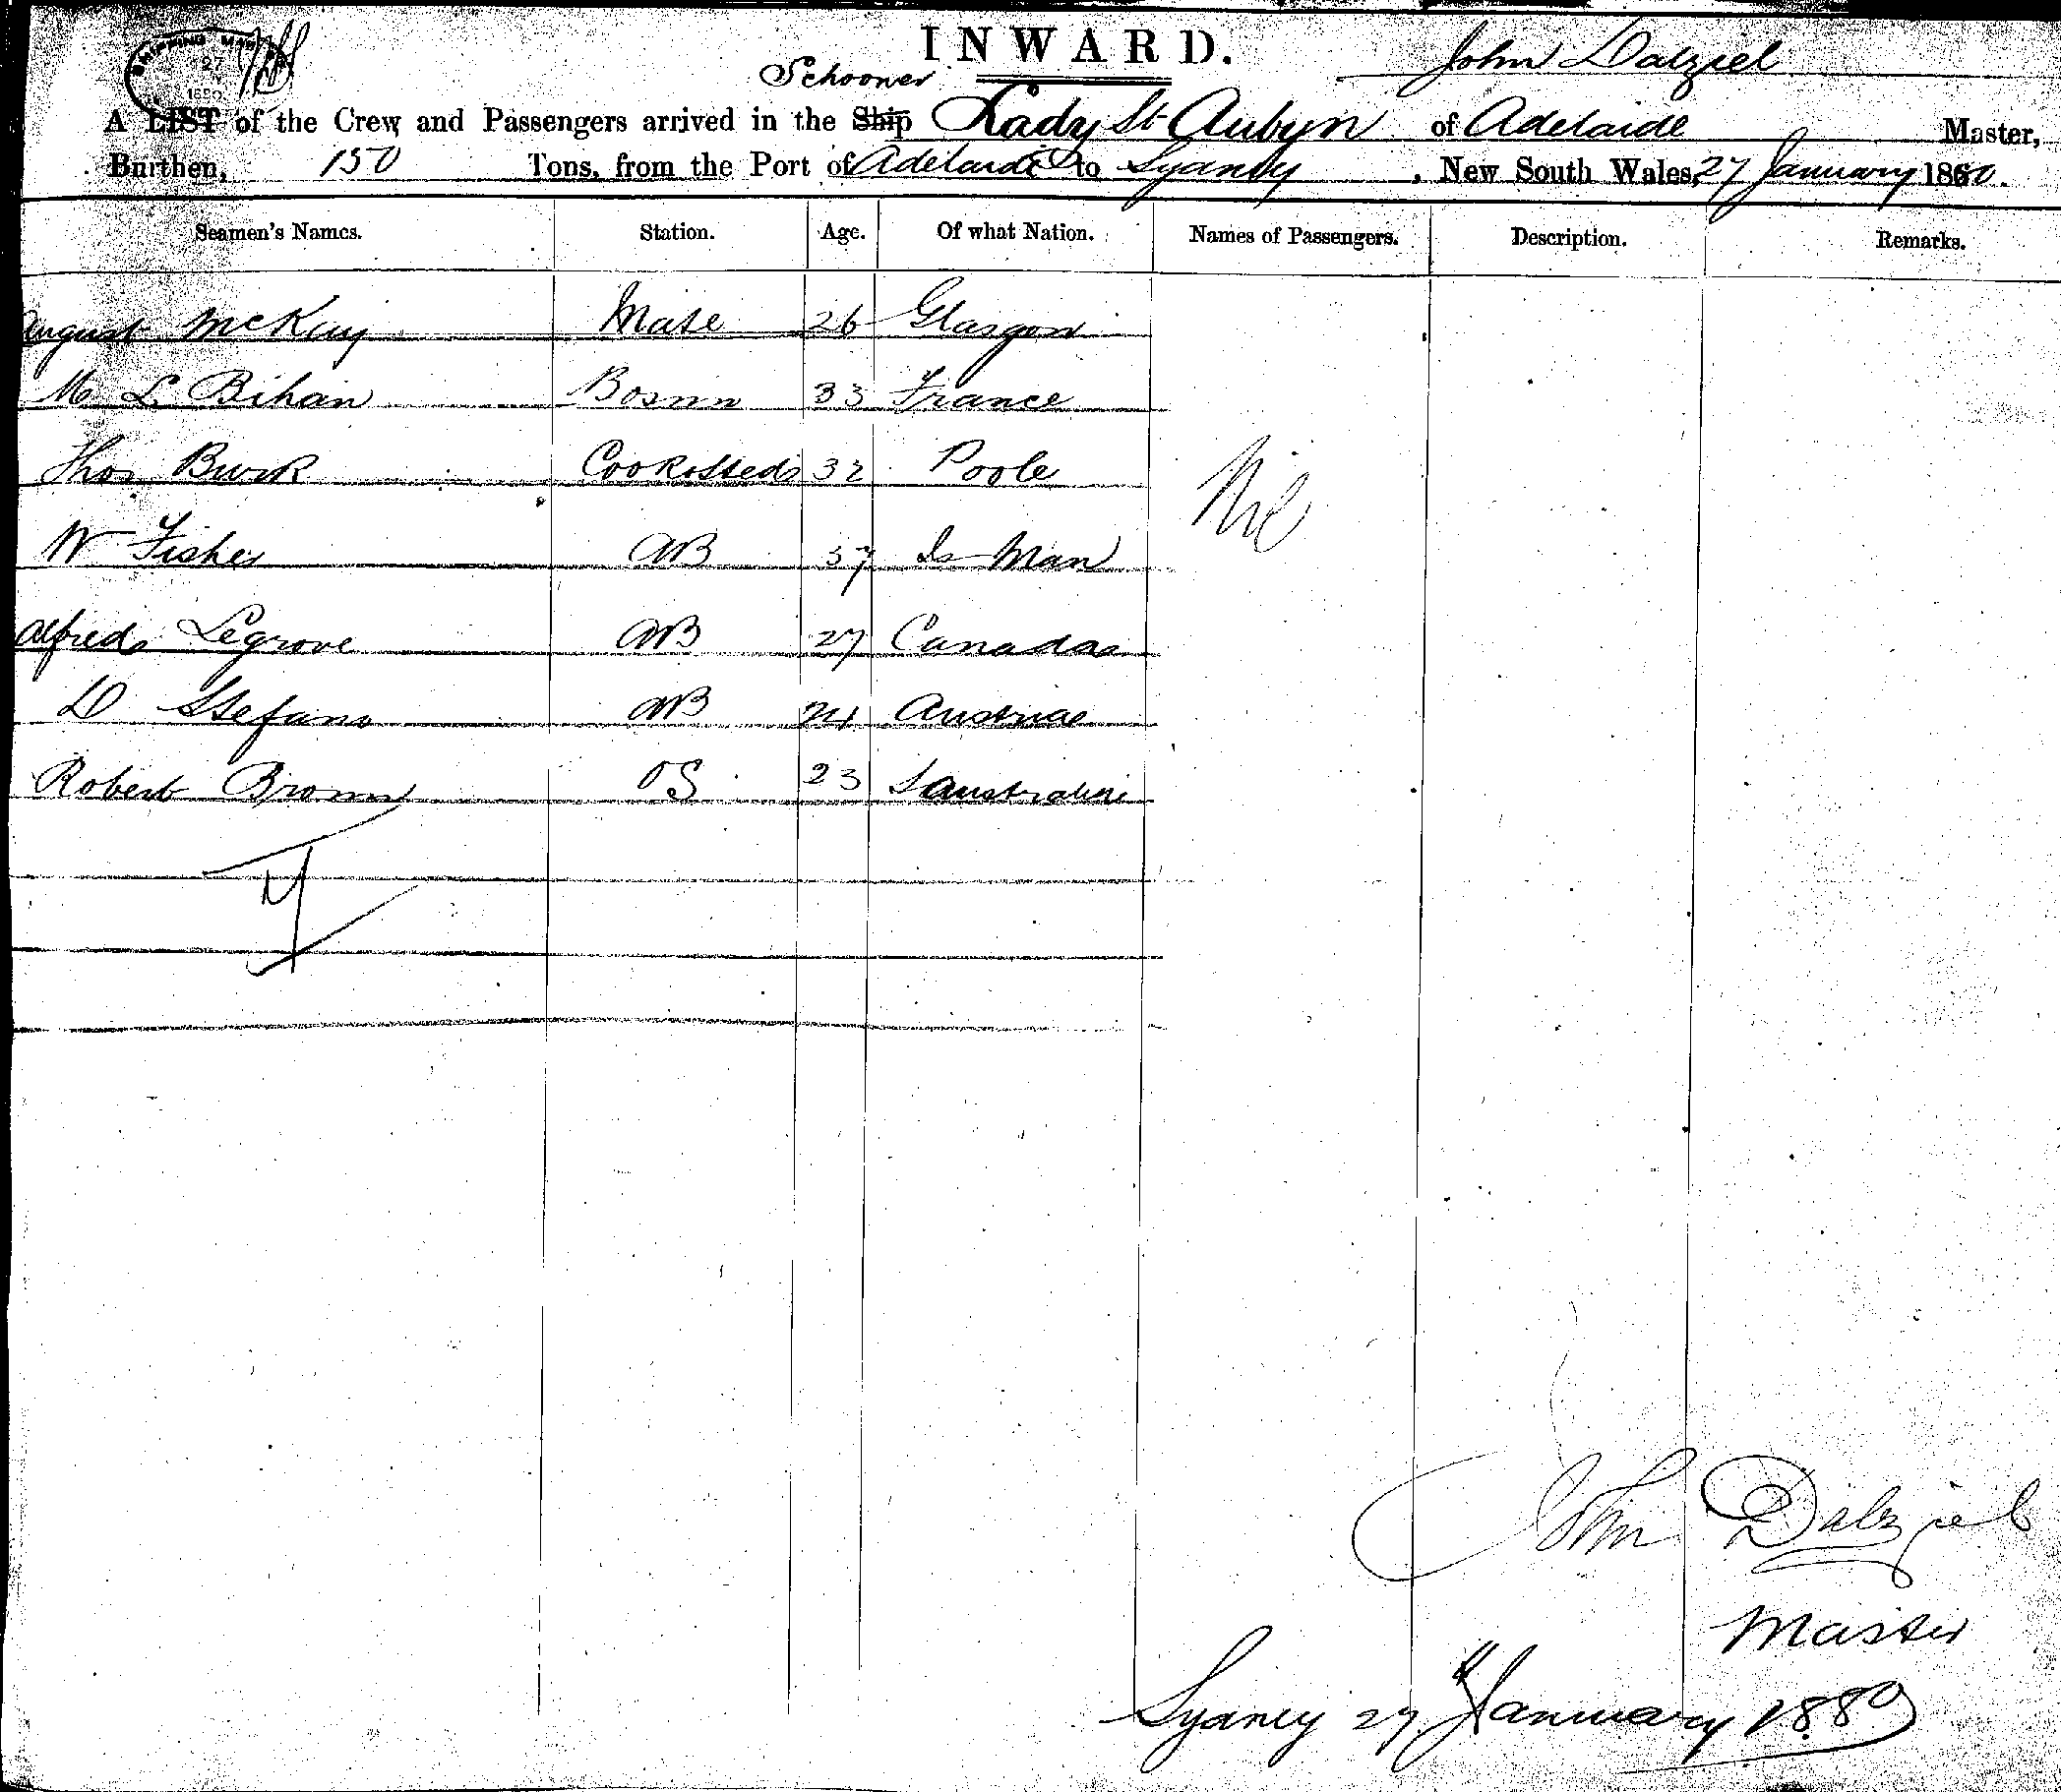 SHIPPING MAS
27
1880
INWARD.
John Dalziel
Schooner
A LIST of the Crew and Passengers arrived in the Ship Lady St Aubyn of Adelaide Master,
Burthen, 150 Tons, from the Port of Adelaide to Sydney, New South Wales, 27 January 1880.
Seamen's Names. Station. Age. Of what Nation. Names of Passengers. Description. Remarks.
August McKay Mate 26 Glasgow
M L Bihan Bosnn 33 France
Thos Burk Cook & Sted 32 Poole
Nil
W Fisher AB 37 Is Man
Alfred Legrove AB 27 Canada
D Stefano AB 24 Austria
Robert Brown OS 23 S Australia
John Dalziel
Master
Sydney 27 January 1880